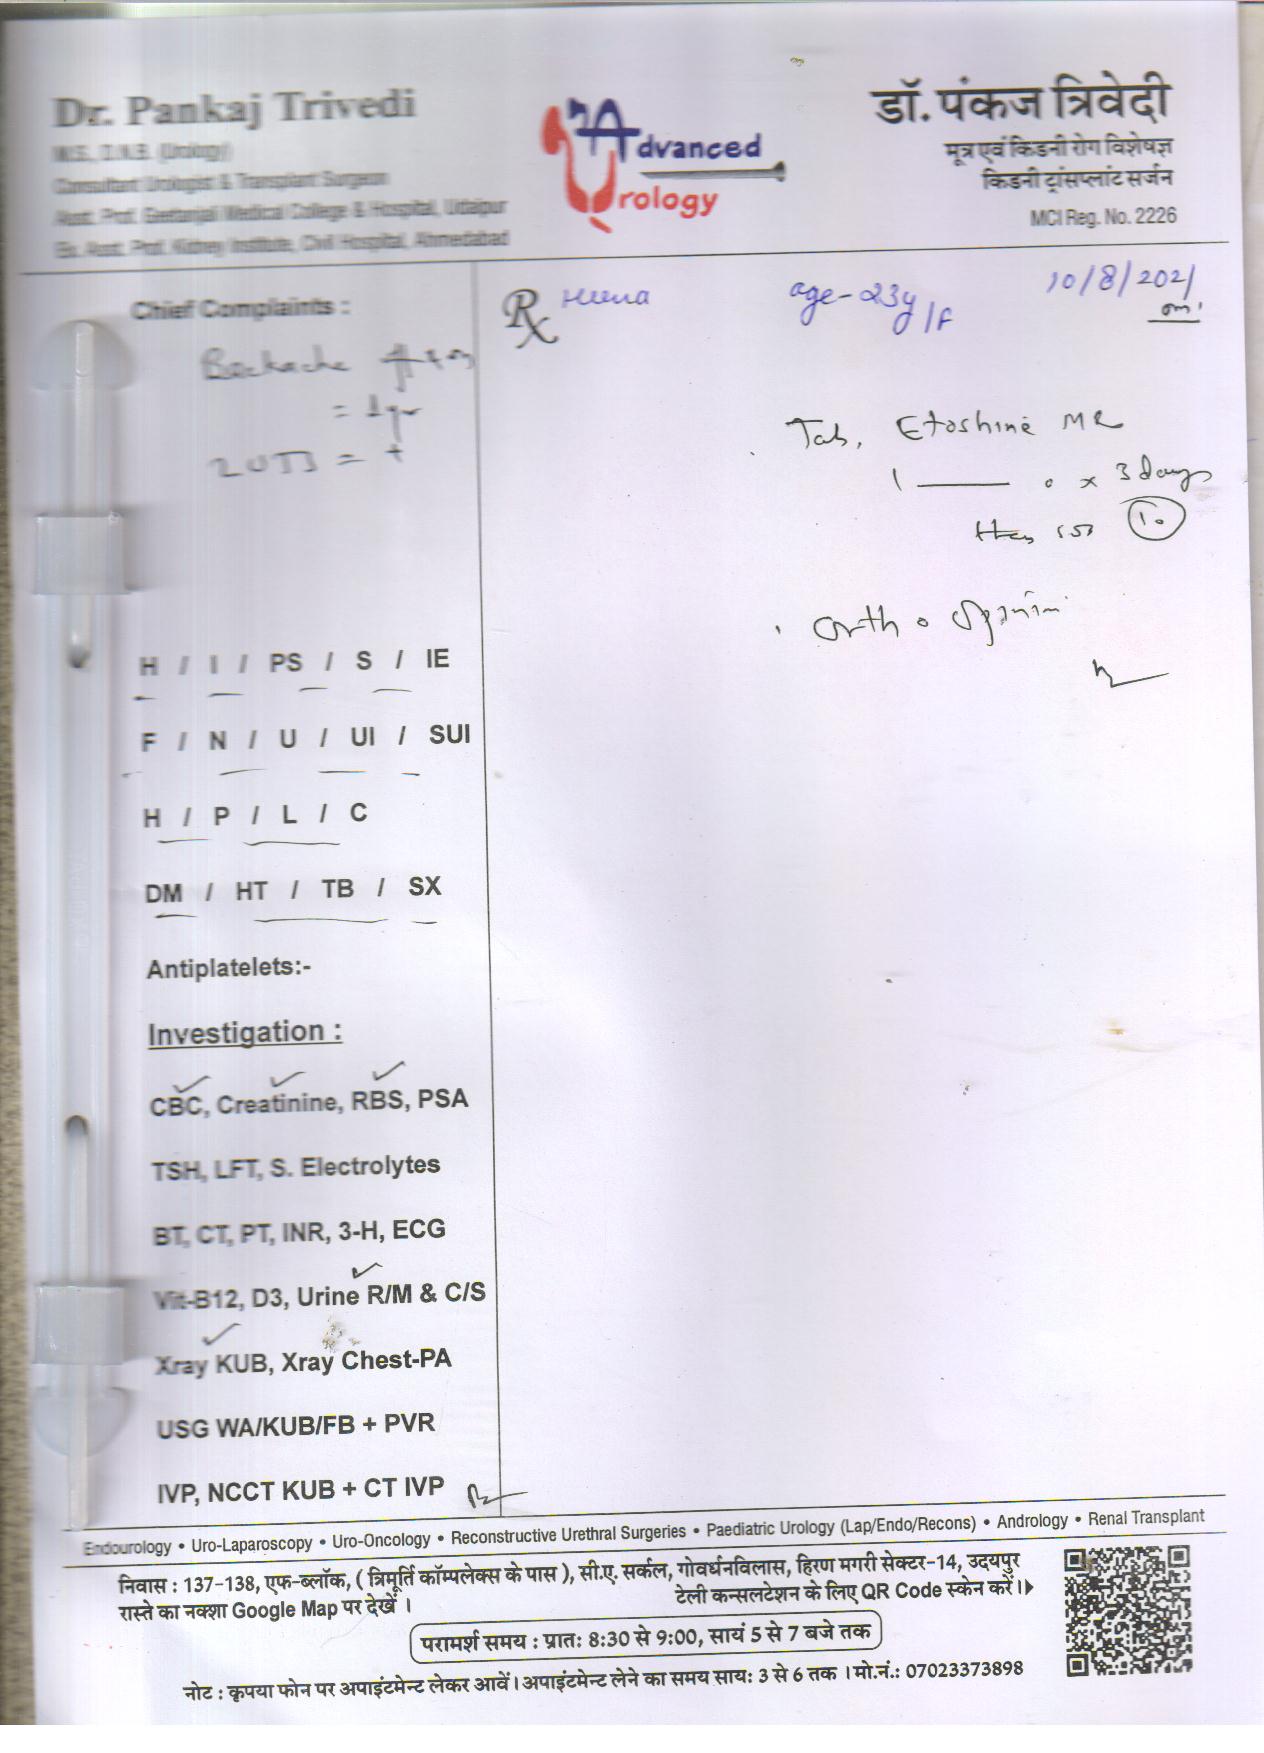 Dr. Pankaj Trivedi
M.S., D.N.B. (Urology)
Consultant Urologist & Transplant Surgeon
Asst. Prof. Geetanjali Medical College & Hospital, Udaipur
Ex. Asst. Prof. Kidney Institute, Civil Hospital, Ahmedabad
Advanced
Urology
डॉ. पंकज त्रिवेदी
मूत्र एवं किडनी रोग विशेषज्ञ
किडनी ट्रांसप्लांट सर्जन
MCI Reg. No. 2226
Chief Complaints :
Backache
= 1yr
LUTS = +
Rx Heena age-23y/F 10/8/2021
Tab, Etoshine MR
1 —— 0 x 3 days
Ortho opinion
H / I / PS / S / IE
F / N / U / UI / SUI
H / P / L / C
DM / HT / TB / SX
Antiplatelets:-
Investigation :
CBC, Creatinine, RBS, PSA
TSH, LFT, S. Electrolytes
BT, CT, PT, INR, 3-H, ECG
Vit-B12, D3, Urine R/M & C/S
Xray KUB, Xray Chest-PA
USG WA/KUB/FB + PVR
IVP, NCCT KUB + CT IVP
Endourology • Uro-Laparoscopy • Uro-Oncology • Reconstructive Urethral Surgeries • Paediatric Urology (Lap/Endo/Recons) • Andrology • Renal Transplant
निवास : 137-138, एफ-ब्लॉक, ( त्रिमूर्ति कॉम्पलेक्स के पास ), सी.ए. सर्कल, गोवर्धनविलास, हिरण मगरी सेक्टर-14, उदयपुर
रास्ते का नक्शा Google Map पर देखें । टेली कन्सलटेशन के लिए QR Code स्केन करें।
परामर्श समय : प्रातः 8:30 से 9:00, सायं 5 से 7 बजे तक
नोट : कृपया फोन पर अपाइंटमेन्ट लेकर आवें। अपाइंटमेन्ट लेने का समय सायः 3 से 6 तक । मो.नं.: 07023373898